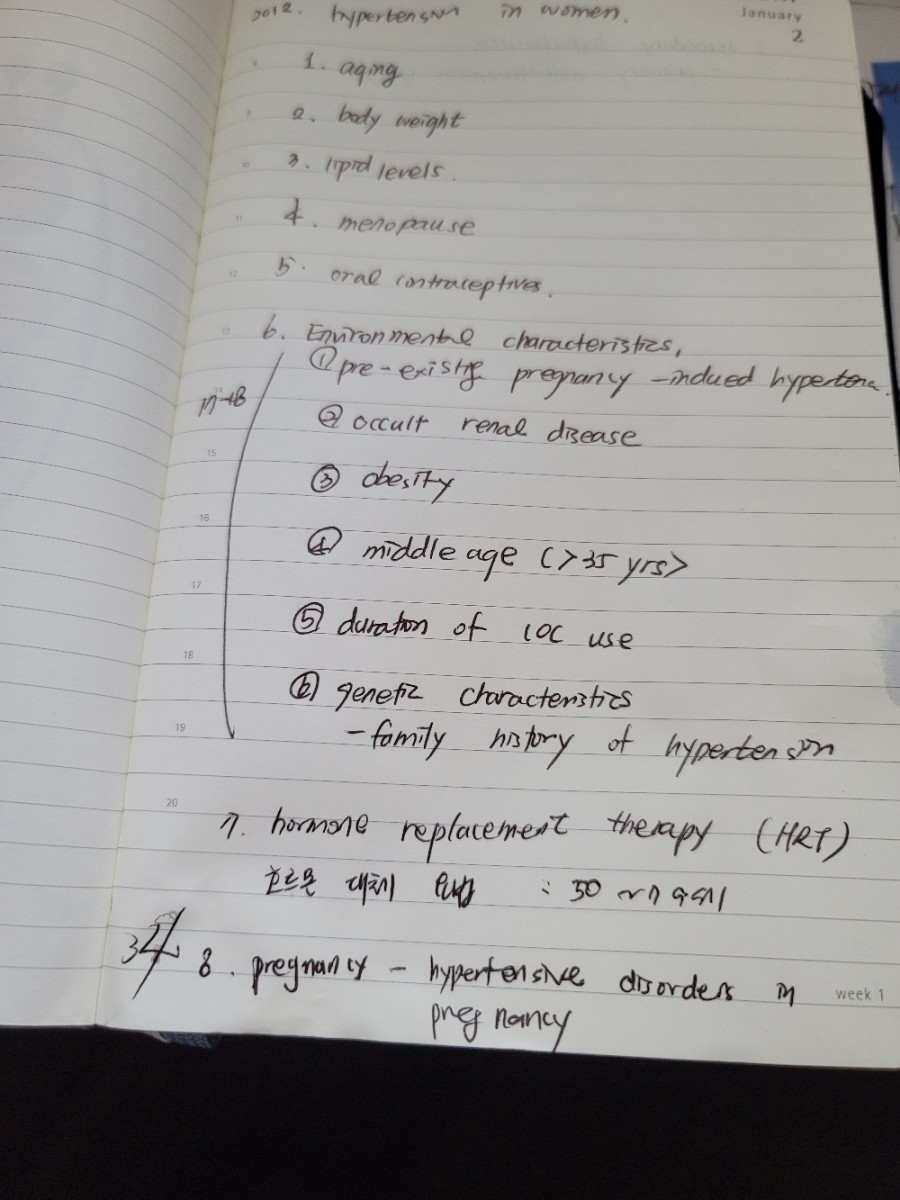 January
2012. hypertension in women.
2
1. aging
2. body weight
3. lipid levels.
4. menopause
5. oral contraceptives.
6. Environmental characteristics,
① pre-existing pregnancy-induced
② occult renal disease
15
③ obesity
16
④ middle age (>35 yrs>
17
⑤ duration of COC use
18
⑥ genetic characteristics
19
- family history of hypertension
20
7. hormone replacement therapy (HRT)
호르몬 대체 요법 : 50
8. pregnancy - hypertensive disorders in
week 1
pregnancy